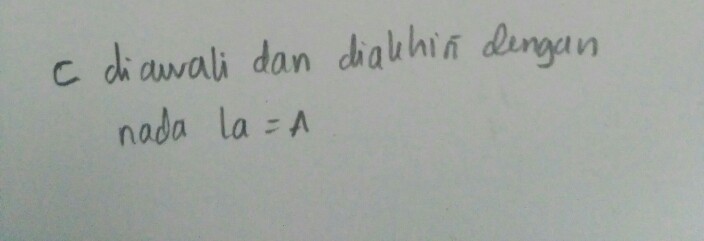 c diawali dan diakhiri dengan
nada la = A